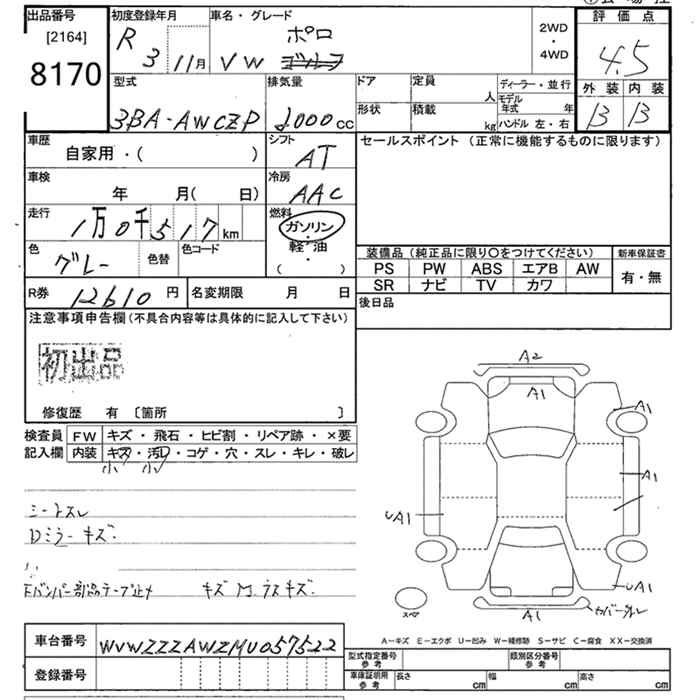 出品番号
[2164]
8170
初度登録年月
R 3 11月
車名・グレード
ポロ
VW
2WD
・
4WD
評価点
4.5
外装 内装
B B
型式
3BA-AWCZP
排気量
2000cc
ドア
形状
定員
人
積載
kg
ディーラー・並行
モデル年式 年
ハンドル 左・右
車歴
自家用・( )
シフト
AT
セールスポイント (正常に機能するものに限ります)
車検
年 月( 日)
冷房
AAC
走行
1万0千517km
燃料
ガソリン
・
軽油
( )
色
グレー
色替
色コード
装備品(純正品に限り○をつけてください)
新車保証書
PS PW ABS エアB AW
SR ナビ TV カワ
有・無
R券 12610円
名変期限 月 日
後日品
注意事項申告欄(不具合内容等は具体的に記入して下さい)
初出品
修復歴 有 〔箇所 〕
検査員記入欄
FW キズ・飛石・ヒビ割・リペア跡・×要
内装 キズ・汚レ・コゲ・穴・スレ・キレ・破レ
小 小
シートスレ
Dミラーキズ
Fバンパー部品テープ止メ キズ M.ラスキズ.
A2
A1
A1
A1
UA1
UA1
A1
スペア
A-キズ E-エクボ U-凹み W-補修跡 S-サビ C-腐食 XX-交換済
車台番号
WVWZZZAWZMU057522
登録番号
型式指定番号
参考
類別区分番号
参考
車庫証明用
参考
長さ cm 幅 cm 高さ cm